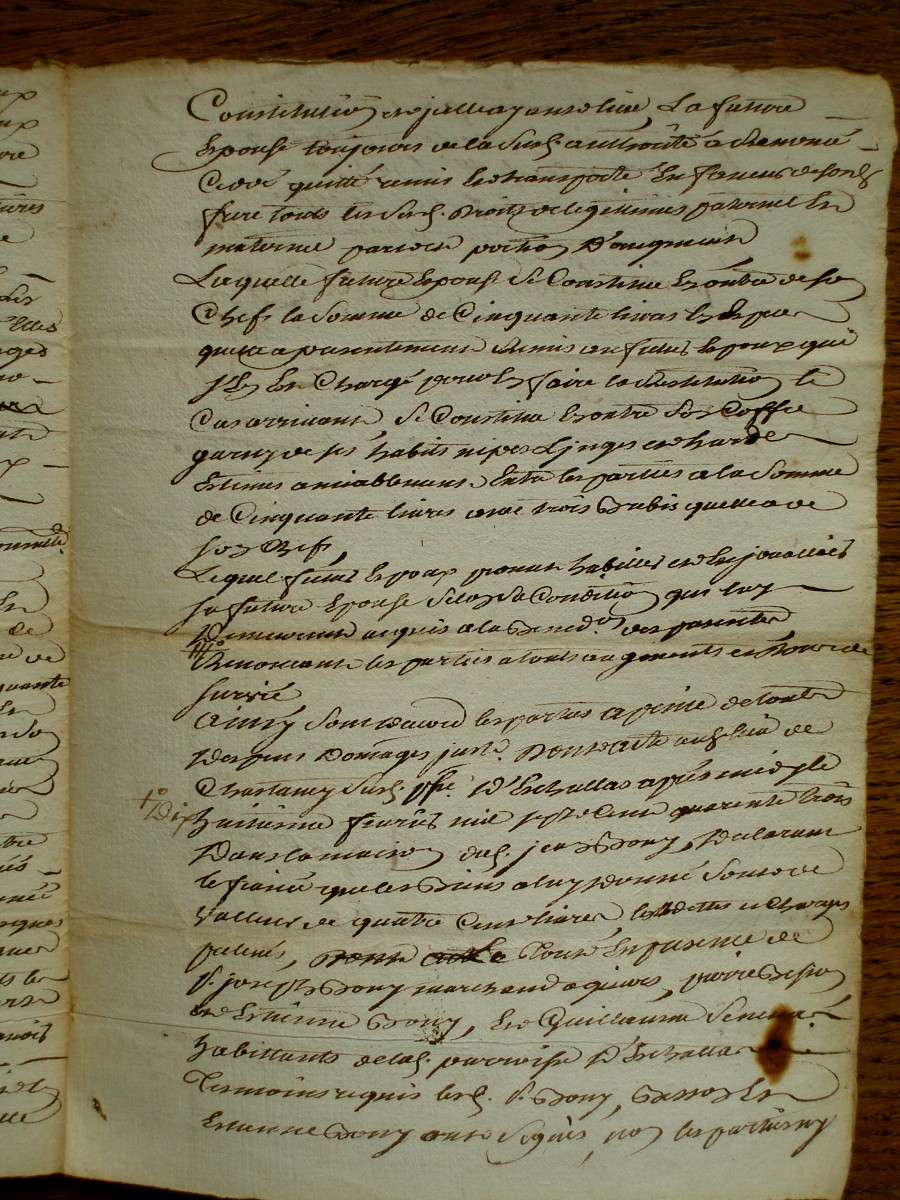 Constitution et jalle ayans lieu, La future
Epouse toujours de la Susd. authorité a Remonté
Cedé quitté remis et transporté En faveur de sond.
frere touts les susd. Droits de legitimes paternel Et
maternel part et portion D'augment
Laquelle future Epouse se Constitue En outre de son
Chef la Somme de Cinquante livres En Espece
quelle a presentement Remis au futur Epoux qui
s'En Est Chargé pour En faire la Restitution le
Cas arrivant, Se Constitue En outre Son Coffre
garny de ses habits nipes Linges et hardes
Estimés amiablement Entre les parties a la Somme
de Cinquante livres avec trois Brebis quelle a de
son Chef,
Lequel futur Epoux promet habiller et Enjoualler
sa future Epouse Selon sa Condition qui luy
Demeureront acquis a la Bened.on des presentes
Renonceant les parties a touts augments et Gains de
survie
Ainsy Sont Dacord les parties a peine de touts
Despens Domages just. Dont acte au lieu de
Chastaney Susd. psse. D'Echallas apres midy le
1º Dix huitieme fevrier mil sept Cent quarente trois
Dans la maison dud. jean Bony, Declarant
le fiancé que les Biens a luy Donné Sont de
valleur de quatre Cent livres, les dettes et Charges
prelevés, Dont acte Touts En presence de
Sr. joseph Bony marchand a giers, pierre Besson
et Estienne Bony, Et Guillaume
habittants de lad. parroisse D'Echallas
Temoins requis lesd. Sr. Bony, Besson Et
Estienne Bony ont Signés, non les parties ny